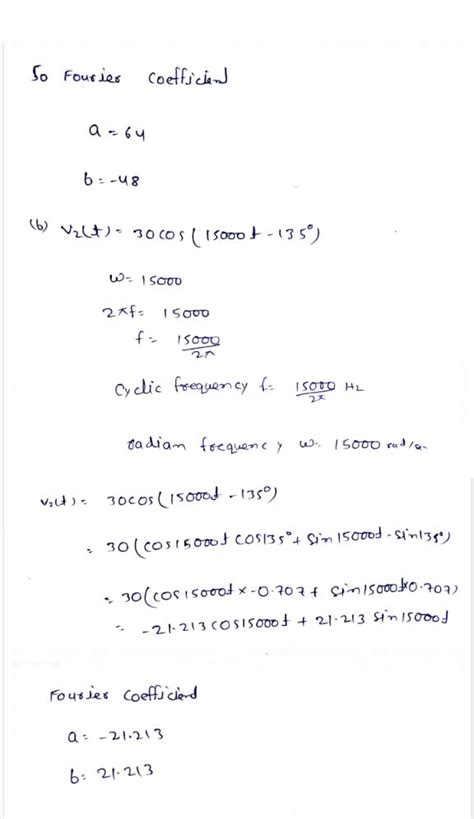 So Fourier Coefficient
a = 64
b = -48
(b) V₂(t) = 30cos(15000t - 135°)
ω = 15000
2πf = 15000
f = 15000/2π
Cyclic frequency f = 15000/2π Hz
radian frequency ω = 15000 rad/s
V₂(t) = 30cos(15000t - 135°)
= 30(cos15000t cos135° + sin15000t · sin135°)
= 30(cos15000t × -0.707 + sin15000t × 0.707)
= -21.213cos15000t + 21.213 sin15000t
Fourier Coefficient
a = -21.213
b = 21.213